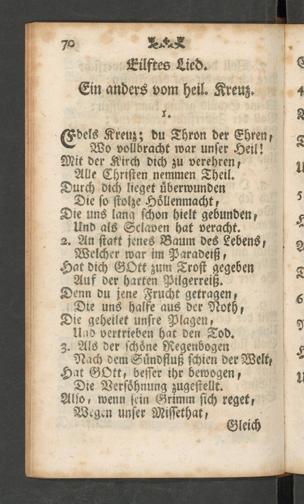 70
Eilftes Lied.
Ein anders vom heil. Kreuz.
1.
Edels Kreuz; du Thron der Ehren,
Wo vollbracht war unser Heil!
Mit der Kirch dich zu verehren,
Alle Christen nemmen Theil.
Durch dich lieget überwunden
Die so stolze Höllenmacht,
Die uns lang schon hielt gebunden,
Und als Sclaven hat veracht.
2. An statt jenes Baum des Lebens,
Welcher war im Paradeiß,
Hat dich GOtt zum Trost gegeben
Auf der harten Pilgerreiß.
Denn du jene Frucht getragen,
Die uns halfe aus der Noth,
Die geheilet unsre Plagen,
Und vertrieben hat den Tod.
3. Als der schöne Regenbogen
Nach dem Sündfluß schien der Welt,
Hat GOtt, besser ihr bewogen,
Die Versöhnung zugestellt.
Also, wenn sein Grimm sich reget,
Wegen unser Missethat,
Gleich